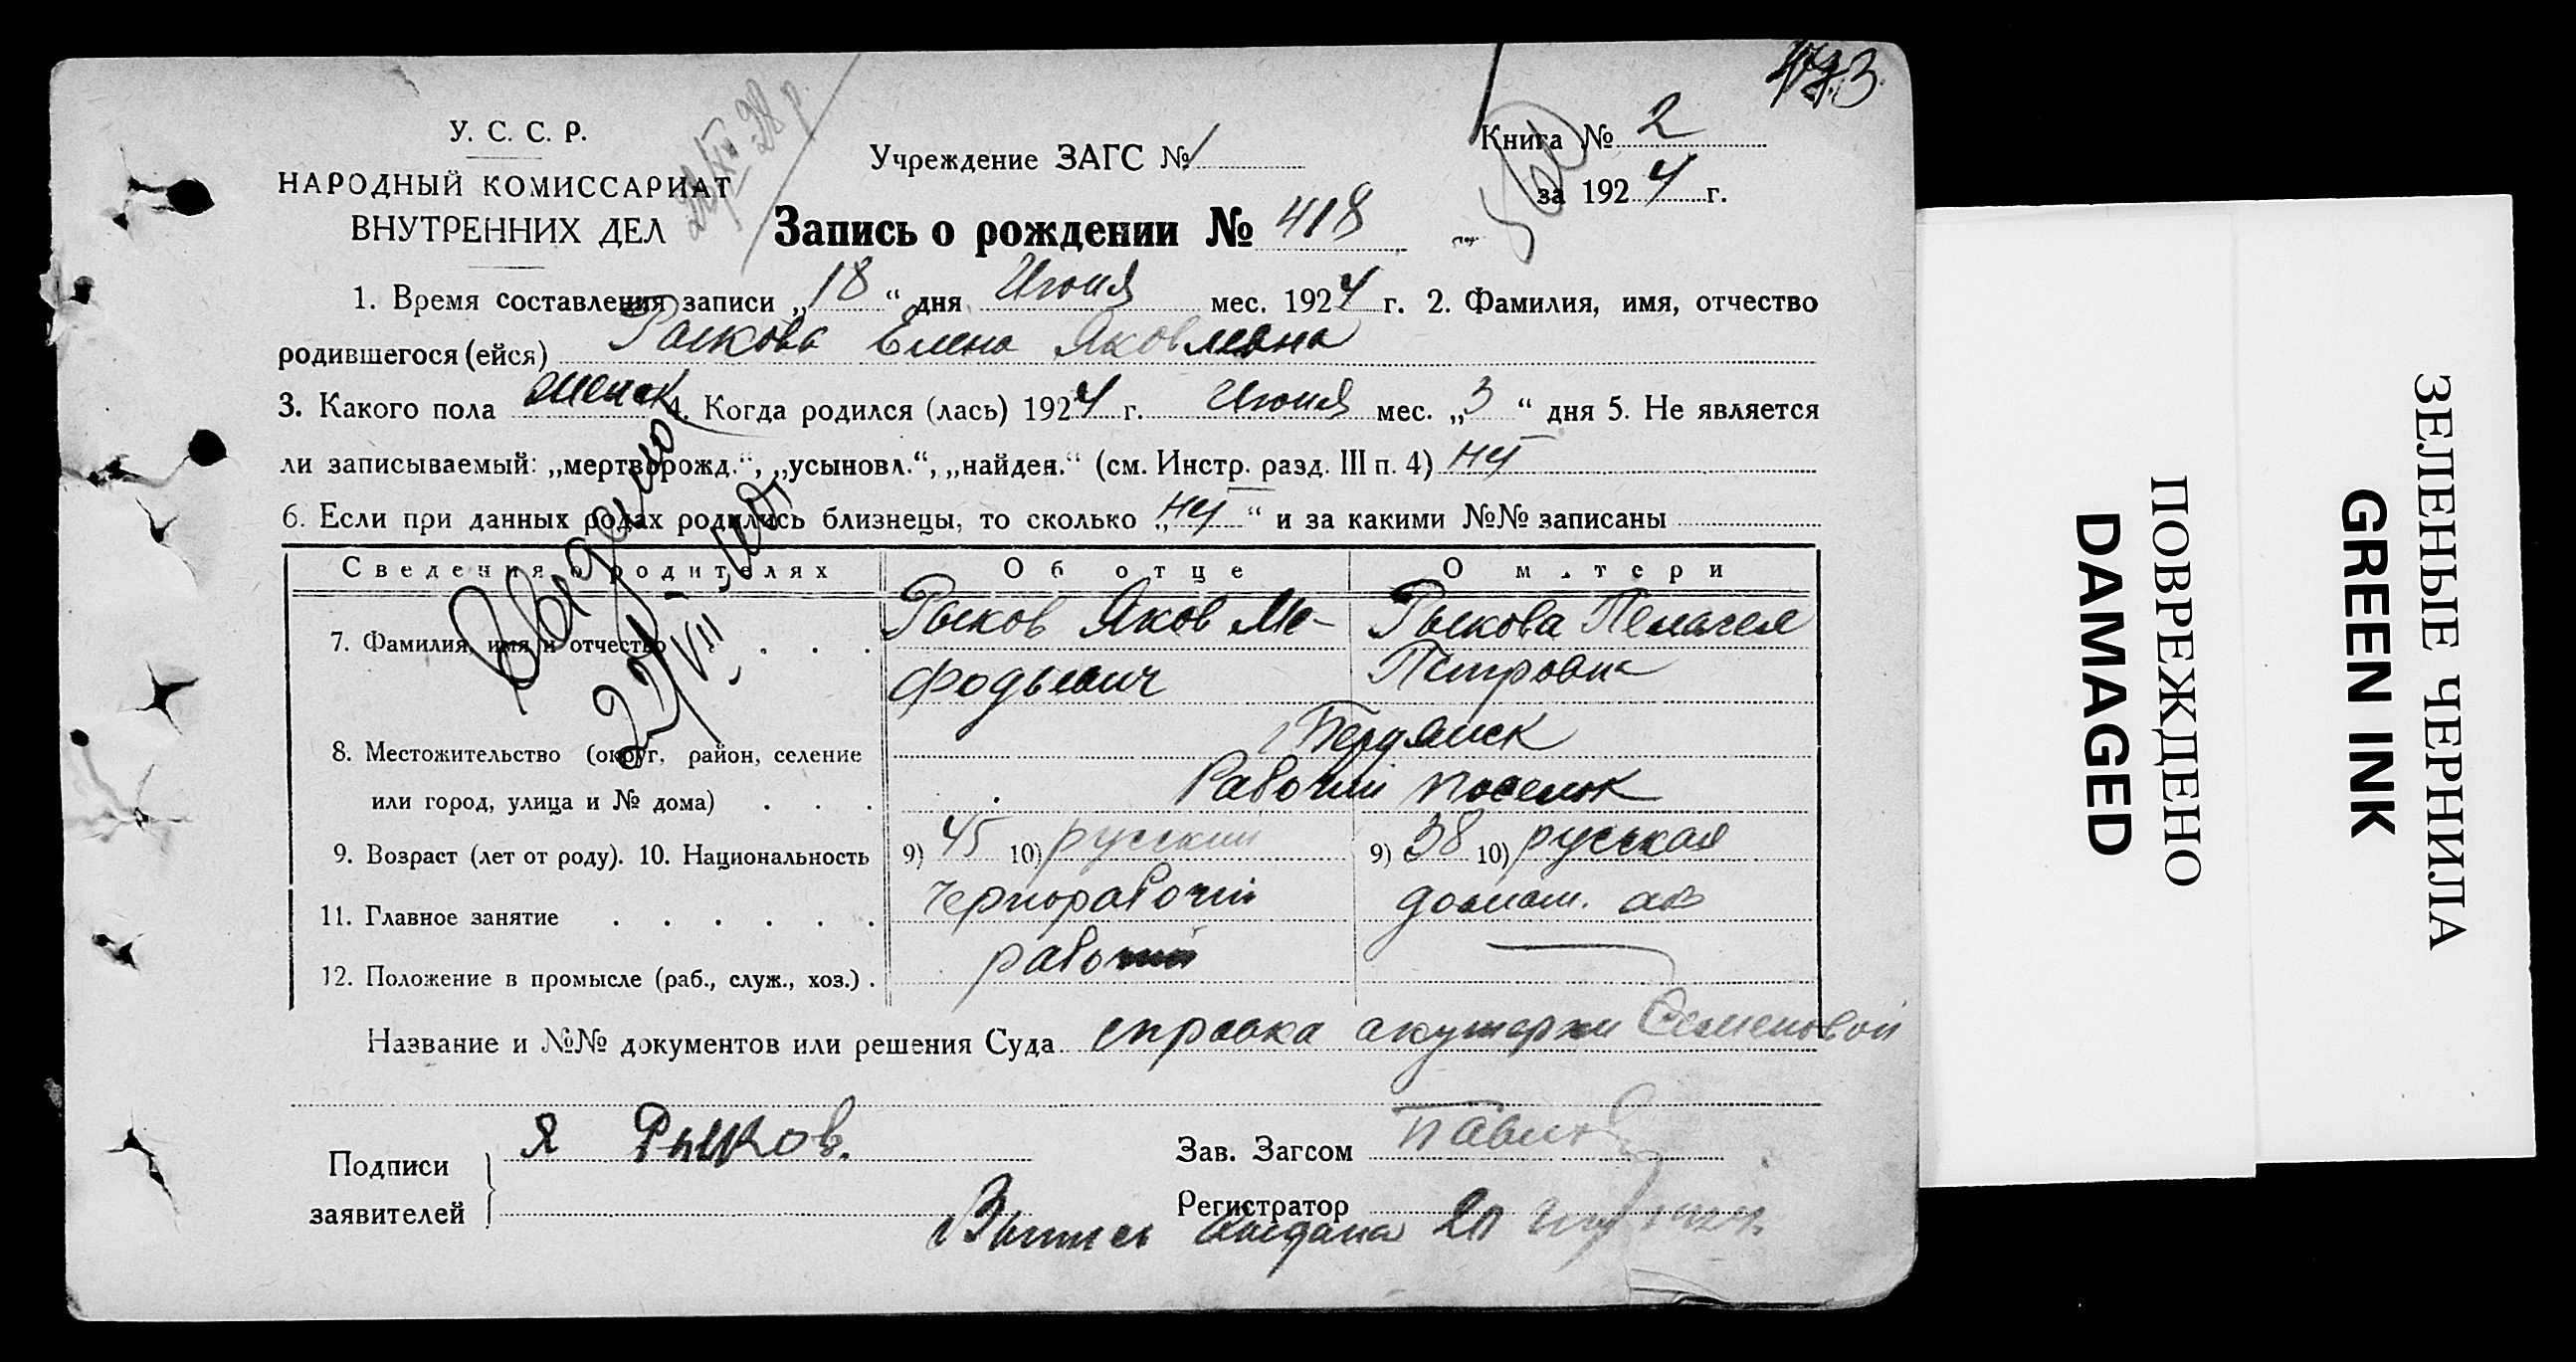 473.
У. С. С. Р.
НАРОДНЫЙ КОМИССАРИАТ
ВНУТРЕННИХ ДЕЛ
Учреждение ЗАГС № 1
Книга № 2
за 1924 г.
Запись о рождении № 418
1. Время составления записи „18“ дня Июня мес. 1924 г. 2. Фамилия, имя, отчество
родившегося (ейся) Рыкова Елена Яковлевна
3. Какого пола женск 4. Когда родился (лась) 1924 г. Июня мес. „3“ дня 5. Не является
ли записываемый: „мертворожд.“, „усыновл.“, „найден.“ (см. Инстр. разд. III п. 4) нет
6. Если при данных родах родились близнецы, то сколько „нет“ и за какими №№ записаны
Выдано
22/VII
Сведения о родителях Об отце О матери
7. Фамилия, имя и отчество . . . Рыков Яков Ме- Рыкова Пелагея
фодьевич Петровна
8. Местожительство (округ, район, селение г Бердянск
или город, улица и № дома) . . . Рабочий поселок
9. Возраст (лет от роду). 10. Национальность 9) 45 10) русский 9) 38 10) русская
11. Главное занятие . . . . . . Чернорабочий домаш. хоз
12. Положение в промысле (раб., служ., хоз.) . рабочий
Название и №№ документов или решения Суда справка акушерки Семеновой
Подписи заявителей Я Рыков.
Зав. Загсом Павлов
Регистратор
Выпись выдана 20 1924г.
ПОВРЕЖДЕНО
DAMAGED
ЗЕЛЕНЫЕ ЧЕРНИЛА
GREEN INK